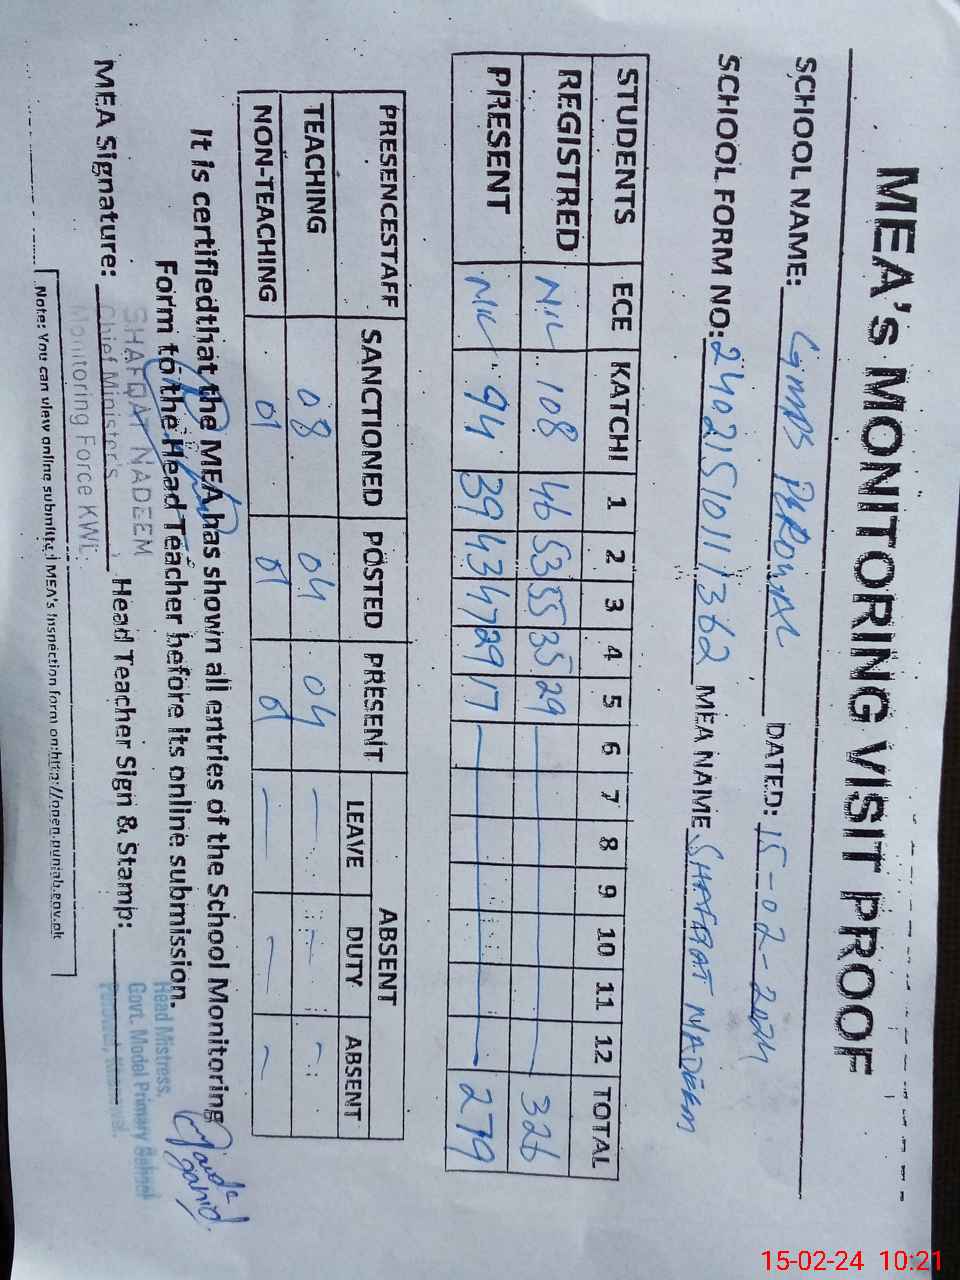 MEA's MONITORING VISIT PROOF
SCHOOL NAME: GMPS PEROWAL DATED: 15-02-2024
SCHOOL FORM NO: 24021510111362 MEA NAME SHAFQAT NADEEM
STUDENTS ECE KATCHI 1 2 3 4 5 6 7 8 9 10 11 12 TOTAL
REGISTRED NIL 108 46 53 55 35 29 326
PRESENT NIL 94 39 43 47 29 17 279
PRESENCESTAFF SANCTIONED POSTED PRESENT ABSENT
LEAVE DUTY ABSENT
TEACHING 08 04 04 — — —
NON-TEACHING 01 01 01 — — —
It is certifiedthat the MEA has shown all entries of the School Monitoring
Form to the Head Teacher before its online submission.
MEA Signature: Head Teacher Sign & Stamp:
SHAFQAT NADEEM
Chief Minister's
Monitoring Force KWL
Head Mistress,
Govt. Model Primary School
Note: You can view online submitted MEA's Inspection form on:http://open.punjab.gov.pk
15-02-24 10:21